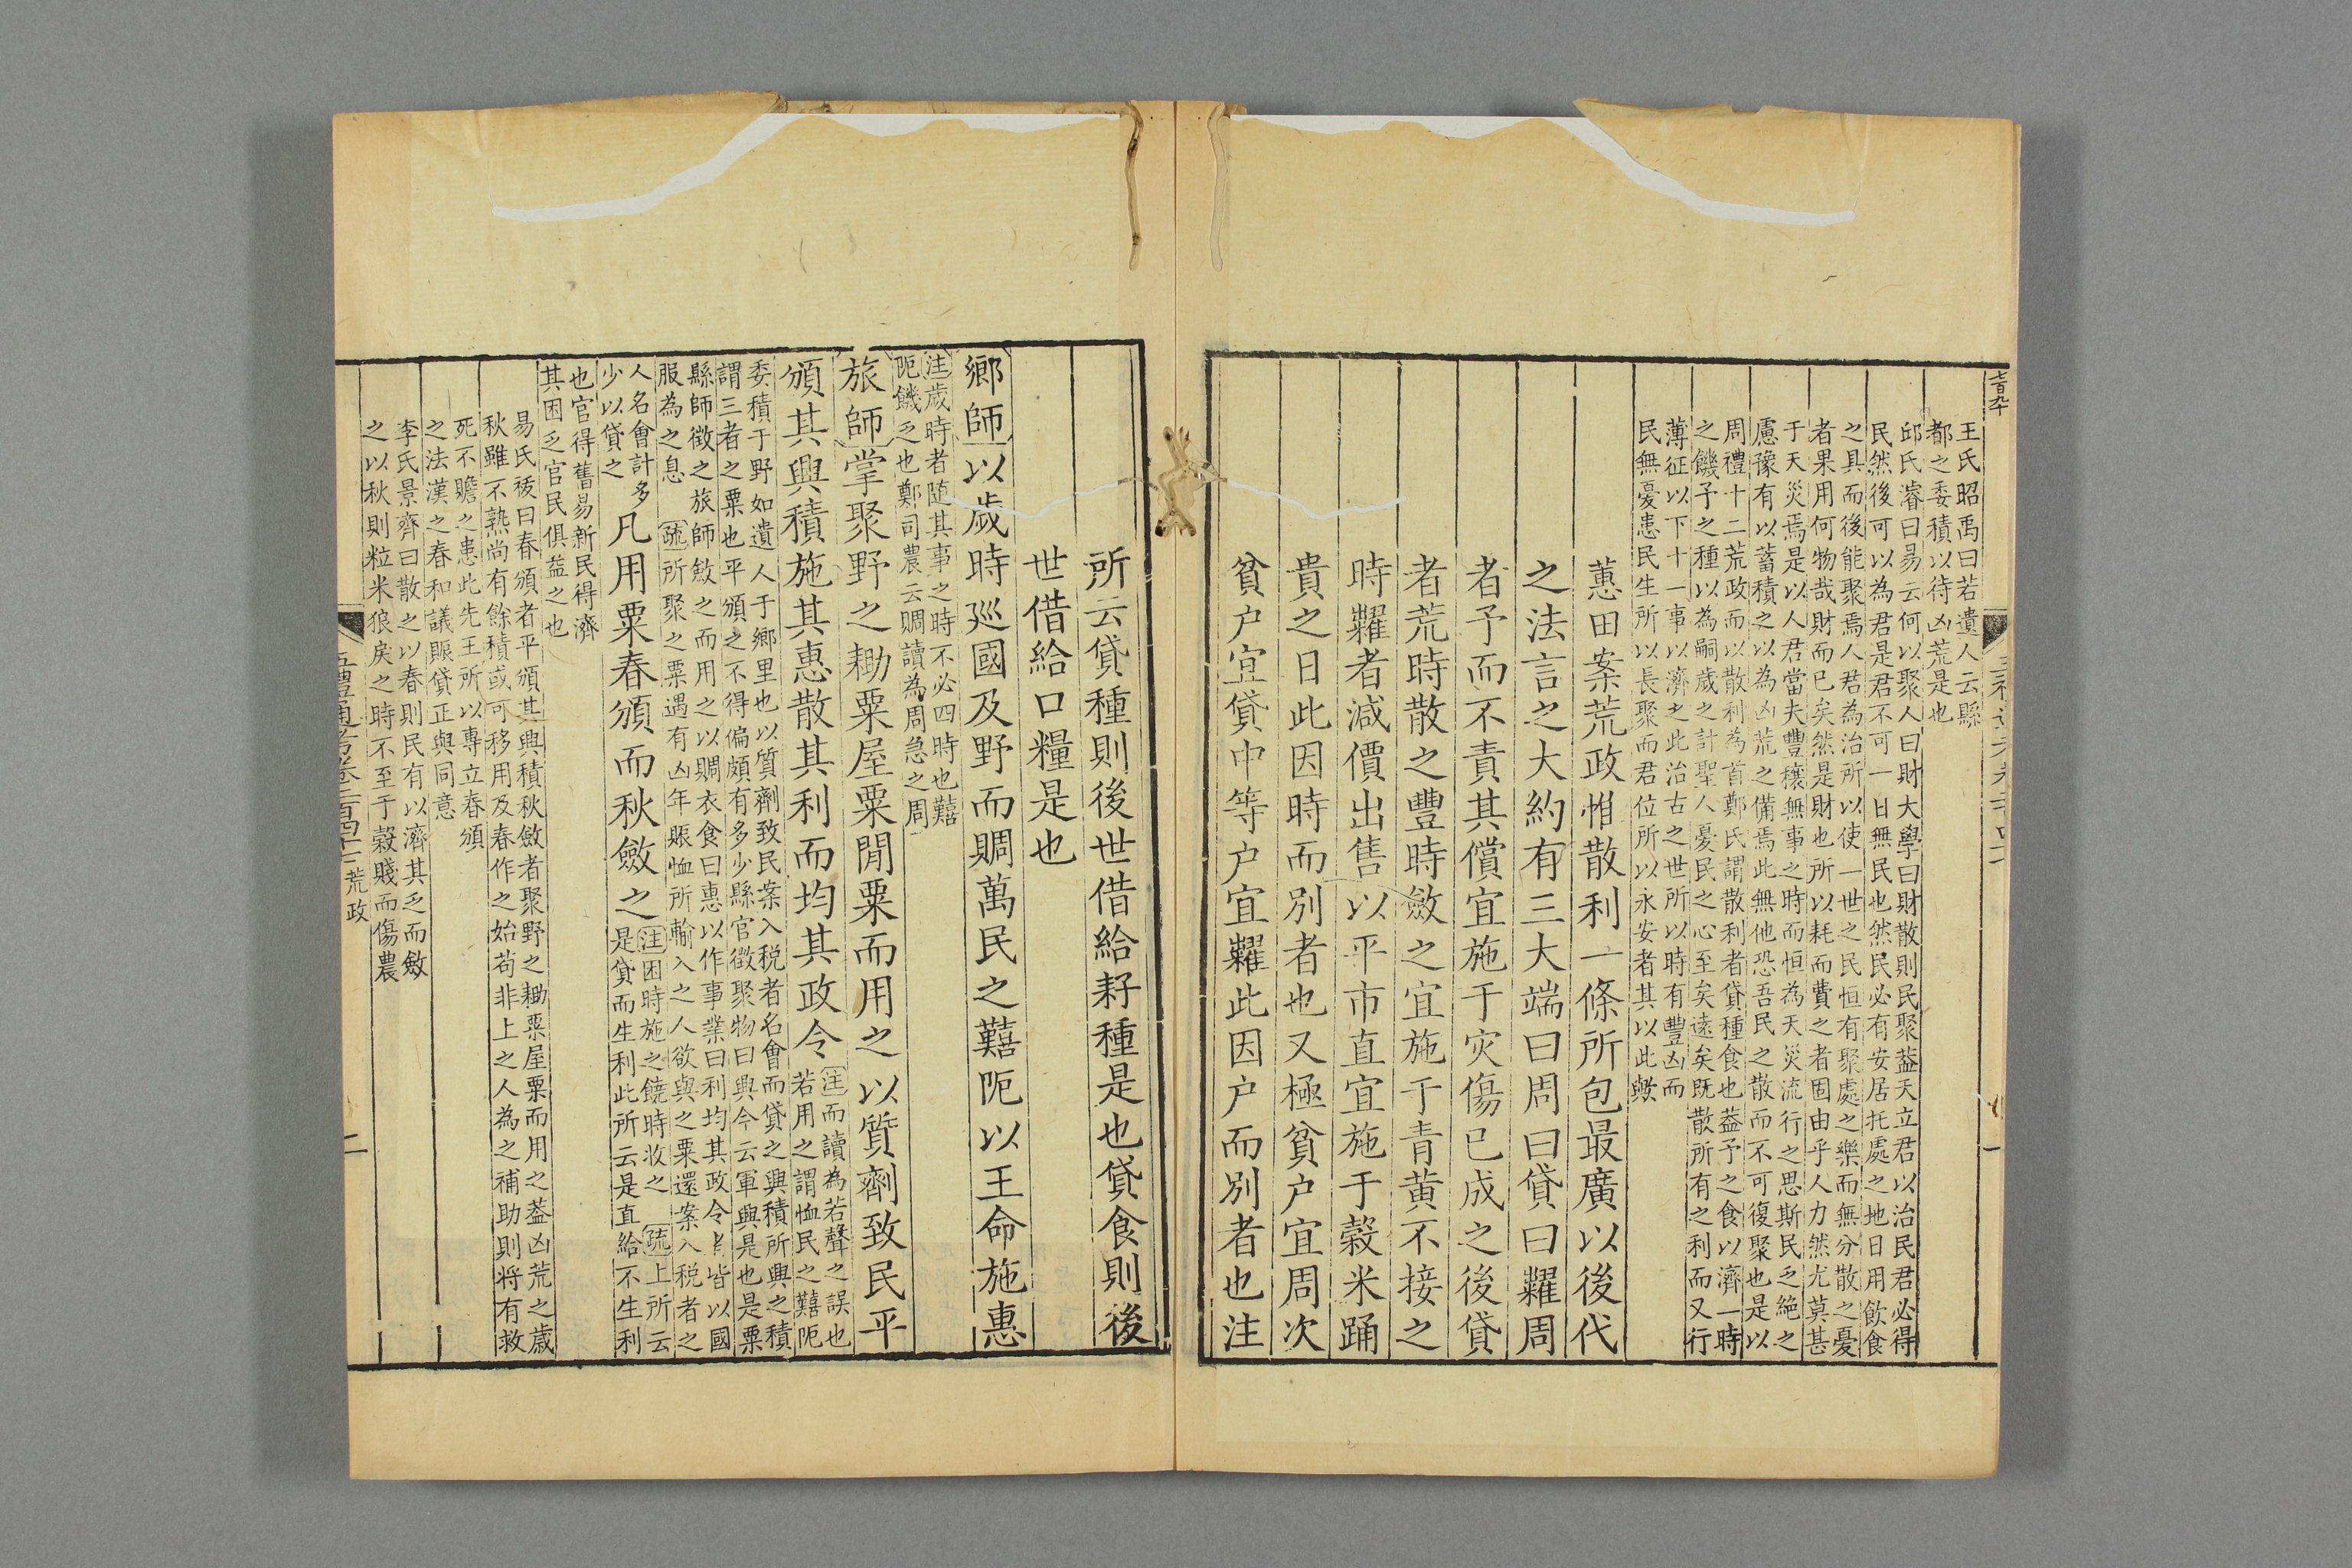 七百九十
王氏昭禹曰若遺人云縣
都之委積以待凶荒是也
邱氏濬曰易云何以聚人曰財大學曰財散則民聚蓋天立君以治民君必得
民然後可以為君是君不可一日無民也然民必有安居托處之地日用飲食
之具而後能聚焉人君為治所以使一世之民恒有聚處之樂而無分散之憂
者果用何物哉財而已矣然是財也所以耗而費之者固由乎人力然尤莫甚
于天災焉是以人君當夫豐穰無事之時而恒為天災流行之思斯民乏絶之
慮豫有以蓄積之以為凶荒之備焉此無他恐吾民之散而不可復聚也是以
周禮十二荒政而以散利為首鄭氏謂散利者貸種食也蓋予之食以濟一時
之饑予之種以為嗣歲之計聖人憂民之心至矣遠矣既散所有之利而又行
薄征以下十一事以濟之此治古之世所以時有豐凶而
民無憂患民生所以長聚而君位所以永安者其以此歟
蕙田案荒政惟散利一條所包最廣以後代
之法言之大約有三大端曰周曰貸曰糶周
者予而不責其償宜施于灾傷已成之後貸
者荒時散之豐時斂之宜施于青黄不接之
時糶者減價出售以平市直宜施于穀米踊
貴之日此因時而別者也又極貧户宜周次
貧户宜貸中等户宜糶此因户而別者也注
所云貸種則後世借給耔種是也貸食則後
世借給口糧是也
鄉師以歲時廵國及野而賙萬民之囏阨以王命施惠
注歲時者随其事之時不必四時也囏
阨饑乏也鄭司農云賙讀為周急之周
旅師掌聚野之耡粟屋粟閒粟而用之以質劑致民平
頒其興積施其惠散其利而均其政令
注而讀為若聲之誤也
若用之謂恤民之囏阨
委積于野如遺人于鄉里也以質劑致民案入税者名會而貸之興積所興之積
謂三者之粟也平頒之不得偏頗有多少縣官徵聚物曰興今云軍興是也是粟
縣師徵之旅師斂之而用之以賙衣食曰惠以作事業曰利均其政令者皆以國
服為之息 疏所聚之粟遇有凶年賑恤所輸入之人欲與之粟還案入税者之
人名會計多
少以貸之
凡用粟春頒而秋斂之
注困時施之饒時收之 疏上所云
是貸而生利此所云是直給不生利
也官得舊易新民得濟
其困乏官民俱益之也
易氏祓曰春頒者平頒其興積秋斂者聚野之耡粟屋粟而用之蓋凶荒之歲
秋雖不熟尚有餘積或可移用及春作之始苟非上之人為之補助則將有救
死不贍之患此先王所以專立春頒
之法漢之春和議賑貸正與同意
李氏景齊曰散之以春則民有以濟其乏而斂
之以秋則粒米狼戾之時不至于穀賤而傷農
五禮通考卷二百四十七荒政
二